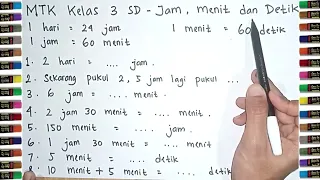 MTK Kelas 3 SD - Jam, menit dan Detik
1 hari = 24 jam 1 menit = 60 detik
1 jam = 60 menit
1. 2 hari = .... jam
2. Sekarang pukul 2, 5 jam lagi pukul ...
3. 6 jam = .... menit.
4. 2 jam 30 menit = .... menit
5. 150 menit = .... jam.
6. 1 jam 30 menit = .... menit
7. 5 menit = .... detik
8. 10 menit + 5 menit = .... detik